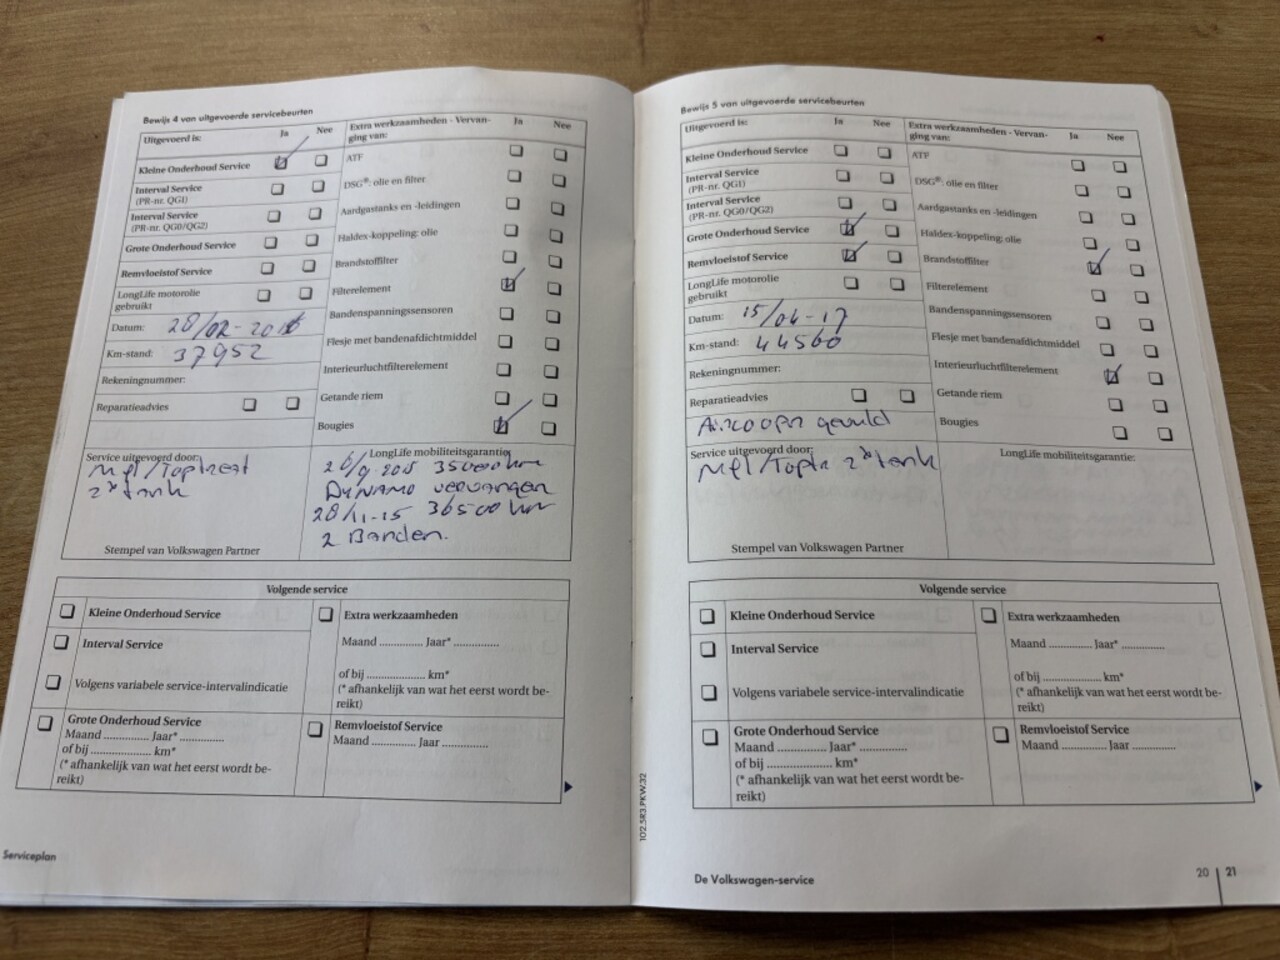 Bewijs 4 van uitgevoerde servicebeurten
Uitgevoerd is: Ja Nee
Kleine Onderhoud Service
Interval Service
(PR-nr. QG1)
Interval Service
(PR-nr. QG0/QG2)
Grote Onderhoud Service
Remvloeistof Service
LongLife motorolie
gebruikt
Datum: 28/02-2016
Km-stand: 37952
Rekeningnummer:
Reparatieadvies
Extra werkzaamheden - Vervan-
ging van: Ja Nee
ATF
DSG®: olie en filter
Aardgastanks en -leidingen
Haldex-koppeling: olie
Brandstoffilter
Filterelement
Bandenspanningssensoren
Flesje met bandenafdichtmiddel
Interieurluchtfilterelement
Getande riem
Bougies
Service uitgevoerd door:
2e tank
Stempel van Volkswagen Partner
LongLife mobiliteitsgarantie:
35000 km
Dynamo vervangen
28/11-15 36500 km
2 Banden.
Volgende service
Kleine Onderhoud Service
Interval Service
Volgens variabele service-intervalindicatie
Grote Onderhoud Service
Maand .............. Jaar* ..............
of bij .................... km*
(* afhankelijk van wat het eerst wordt be-
reikt)
Extra werkzaamheden
Maand .............. Jaar* ..............
of bij .................... km*
(* afhankelijk van wat het eerst wordt be-
reikt)
Remvloeistof Service
Maand .............. Jaar ..............
Serviceplan
Bewijs 5 van uitgevoerde servicebeurten
Uitgevoerd is: Ja Nee
Kleine Onderhoud Service
Interval Service
(PR-nr. QG1)
Interval Service
(PR-nr. QG0/QG2)
Grote Onderhoud Service
Remvloeistof Service
LongLife motorolie
gebruikt
Datum: 15/04-17
Km-stand: 44560
Rekeningnummer:
Reparatieadvies
gevuld
Extra werkzaamheden - Vervan-
ging van: Ja Nee
ATF
DSG®: olie en filter
Aardgastanks en -leidingen
Haldex-koppeling: olie
Brandstoffilter
Filterelement
Bandenspanningssensoren
Flesje met bandenafdichtmiddel
Interieurluchtfilterelement
Getande riem
Bougies
Service uitgevoerd door:
2e tank
Stempel van Volkswagen Partner
LongLife mobiliteitsgarantie:
Volgende service
Kleine Onderhoud Service
Interval Service
Volgens variabele service-intervalindicatie
Grote Onderhoud Service
Maand .............. Jaar* ..............
of bij .................... km*
(* afhankelijk van wat het eerst wordt be-
reikt)
Extra werkzaamheden
Maand .............. Jaar* ..............
of bij .................... km*
(* afhankelijk van wat het eerst wordt be-
reikt)
Remvloeistof Service
Maand .............. Jaar ..............
102.5R3.PKW.32
De Volkswagen-service
20 | 21